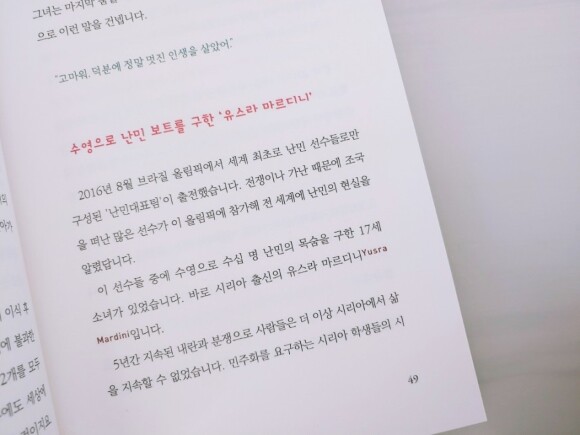 그녀는 마지막
으로 이런 말을 건넵니다.
“고마워, 덕분에 정말 멋진 인생을 살았어.”
수영으로 난민 보트를 구한 ‘유스라 마르디니’
2016년 8월 브라질 올림픽에서 세계 최초로 난민 선수들로만
구성된 ‘난민대표팀’이 출전했습니다. 전쟁이나 가난 때문에 조국
을 떠난 많은 선수가 이 올림픽에 참가해 전 세계에 난민의 현실을
알렸답니다.
이 선수들 중에 수영으로 수십 명 난민의 목숨을 구한 17세
소녀가 있었습니다. 바로 시리아 출신의 유스라 마르디니Yusra
Mardini입니다.
5년간 지속된 내란과 분쟁으로 사람들은 더 이상 시리아에서 삶
을 지속할 수 없었습니다. 민주화를 요구하는 시리아 학생들의 시
49
이식 후
에 불과한
2개를 모두
에도 세상에